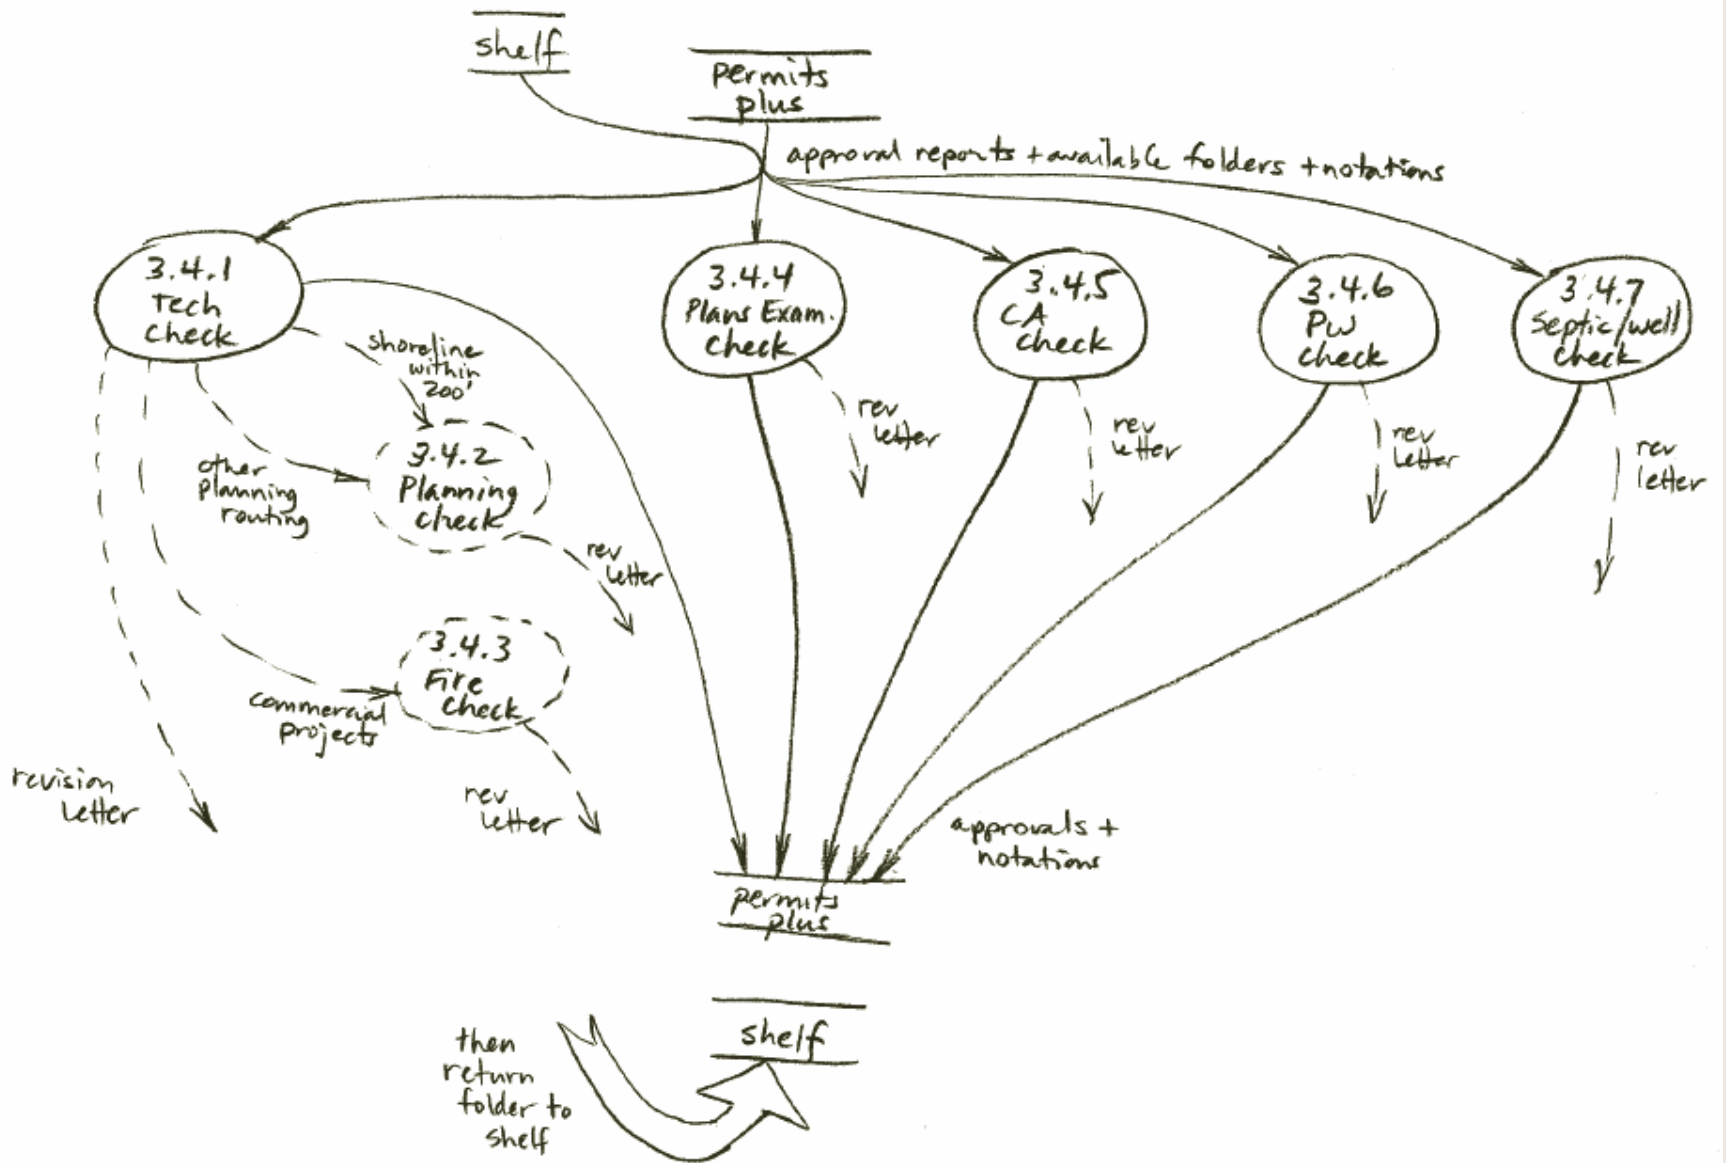 shelf
permits
plus
approval reports + available folders + notations
3.4.1
Tech
Check
3.4.4
Plans Exam.
Check
3.4.5
CA
Check
3.4.6
PW
Check
3.4.7
Septic/well
Check
shoreline
within
200'
rev
letter
rev
letter
rev
letter
rev
letter
3.4.2
Planning
Check
other
planning
routing
rev
letter
3.4.3
Fire
Check
commercial
projects
revision
letter
rev
letter
approvals +
notations
permits
plus
shelf
then
return
folder to
shelf